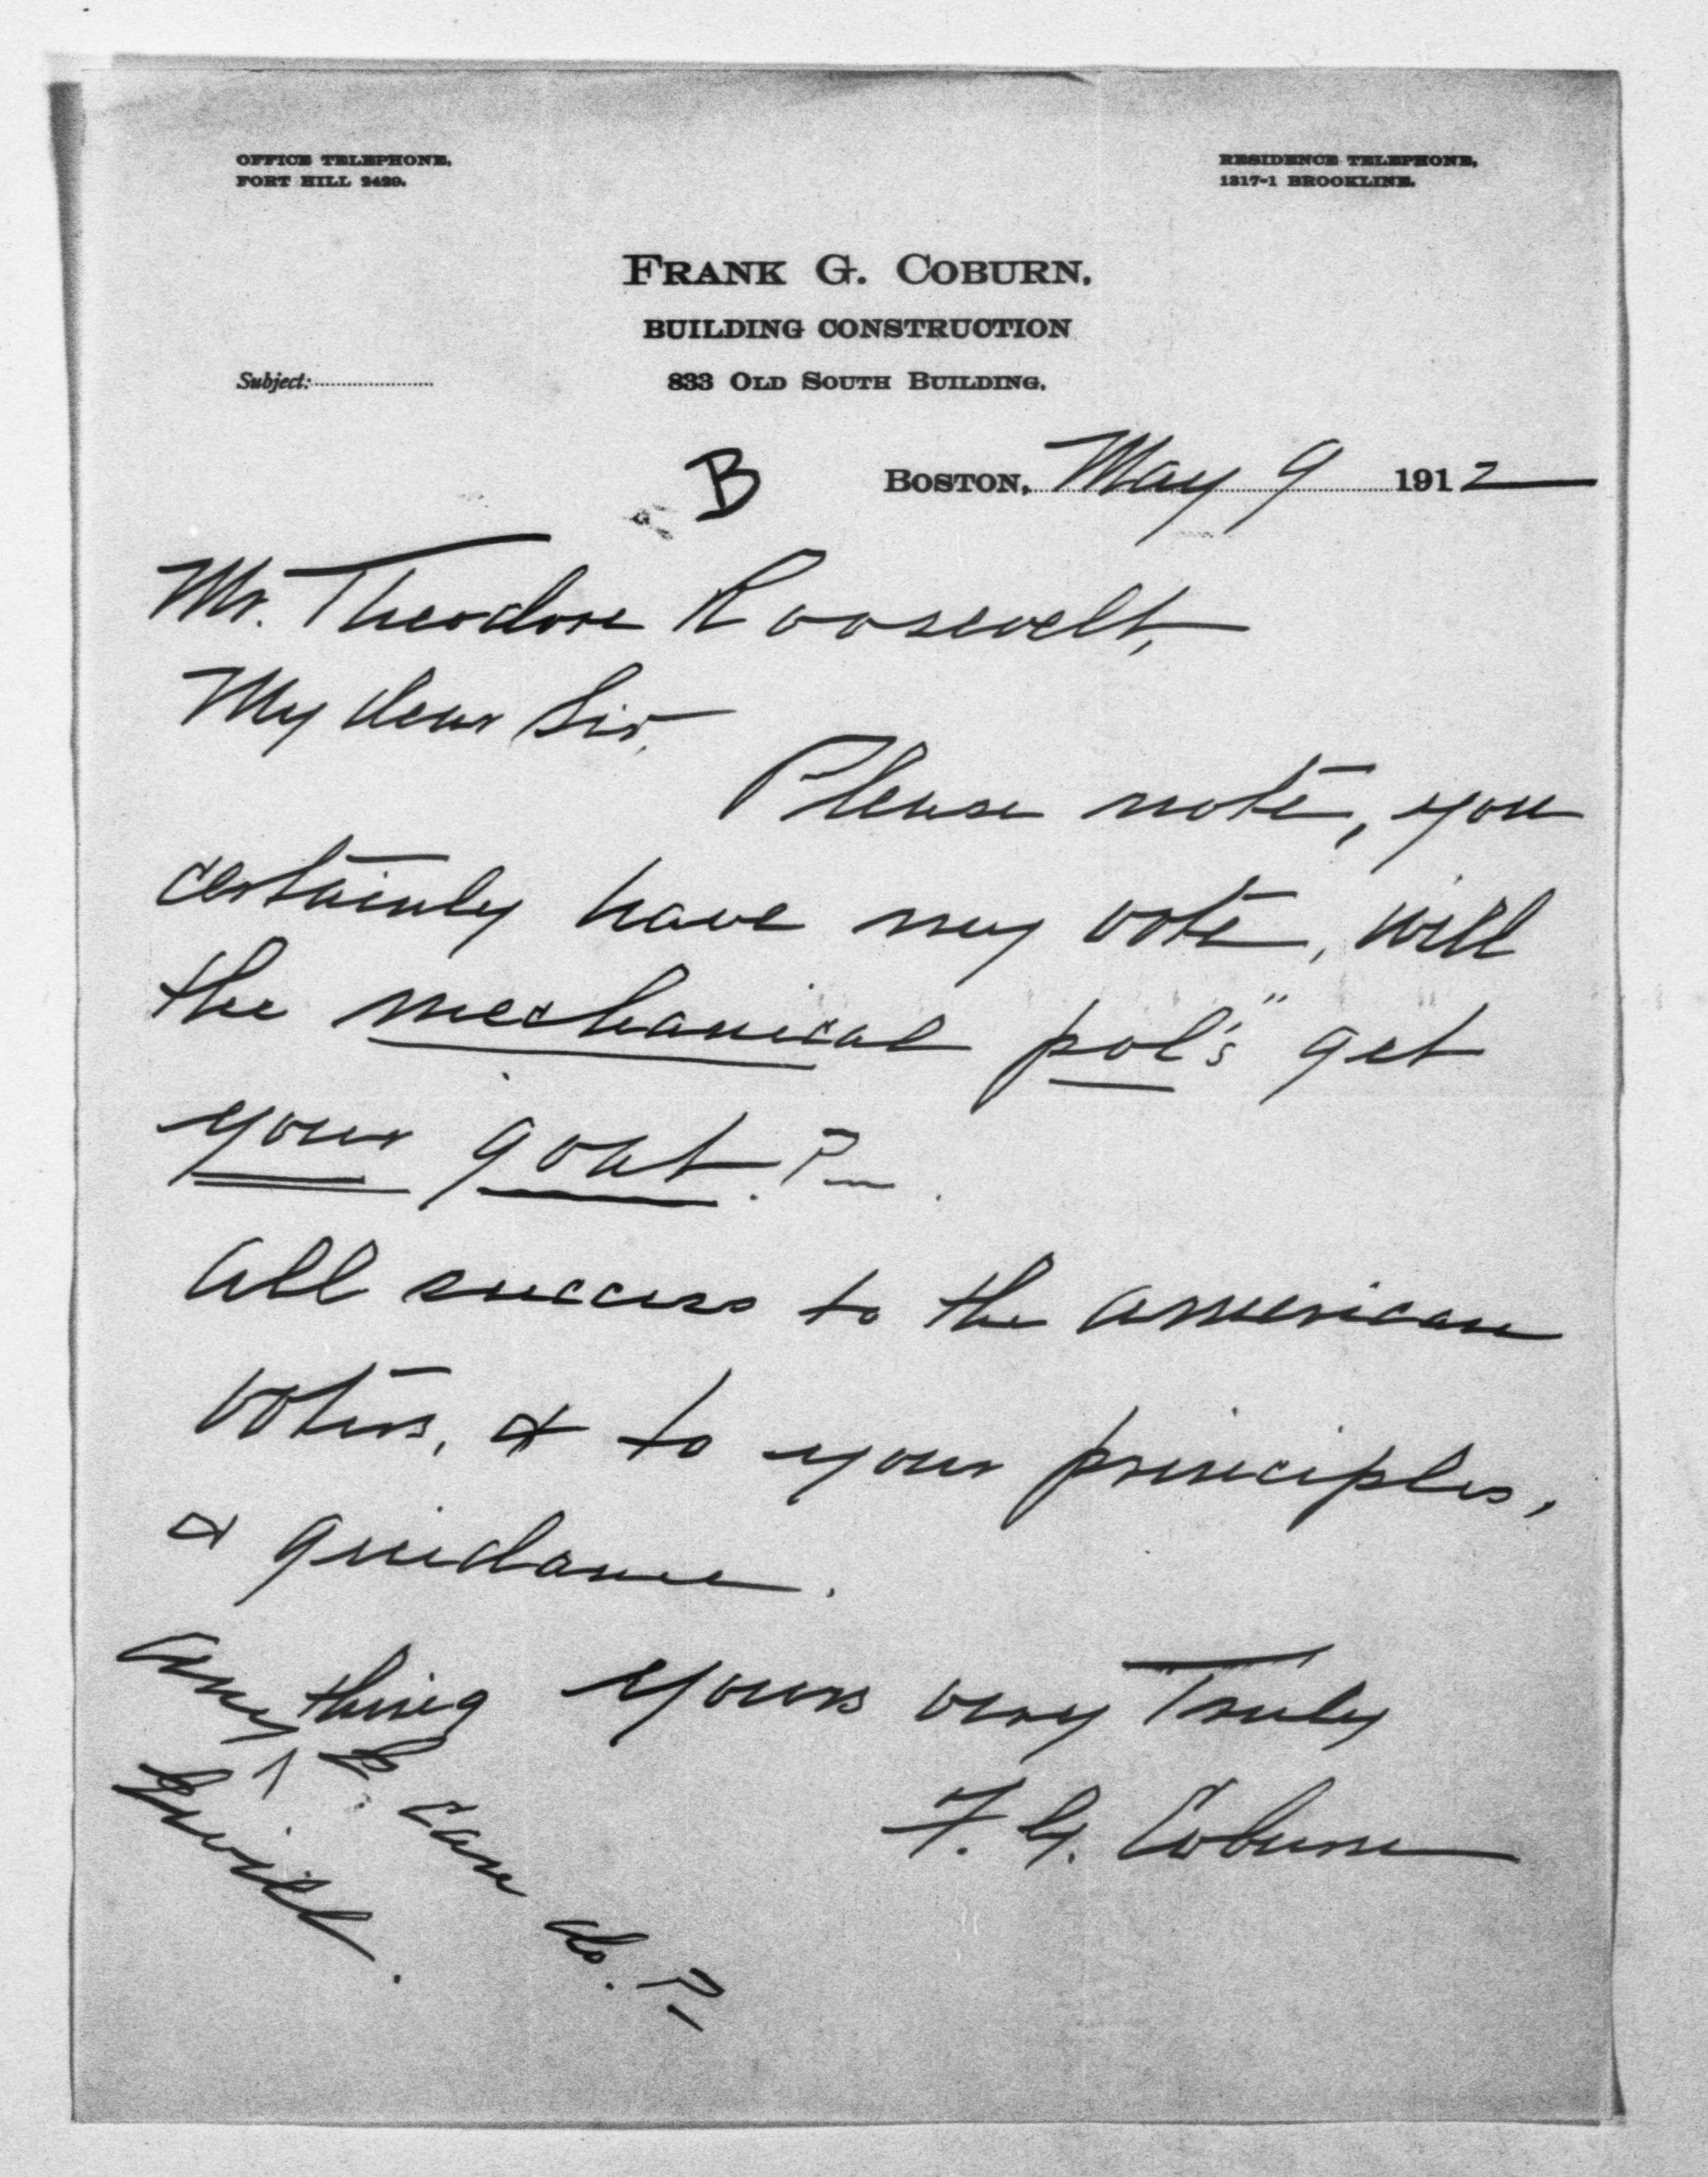 OFFICE TELEPHONE,
FORT HILL 2420.
RESIDENCE TELEPHONE,
1317-1 BROOKLINE.
FRANK G. COBURN,
BUILDING CONSTRUCTION
Subject:
833 OLD SOUTH BUILDING.
B
BOSTON, May 9 1912
Mr. Theodore Roosevelt,
My dear Sir,
Please note, you
certainly have my vote, will
the mechanical pol's" get
your goat.?
All success to the American
voters, & to your principles,
& guidance.
Yours very Truly
F. G. Coburn
Any thing
can do. ?